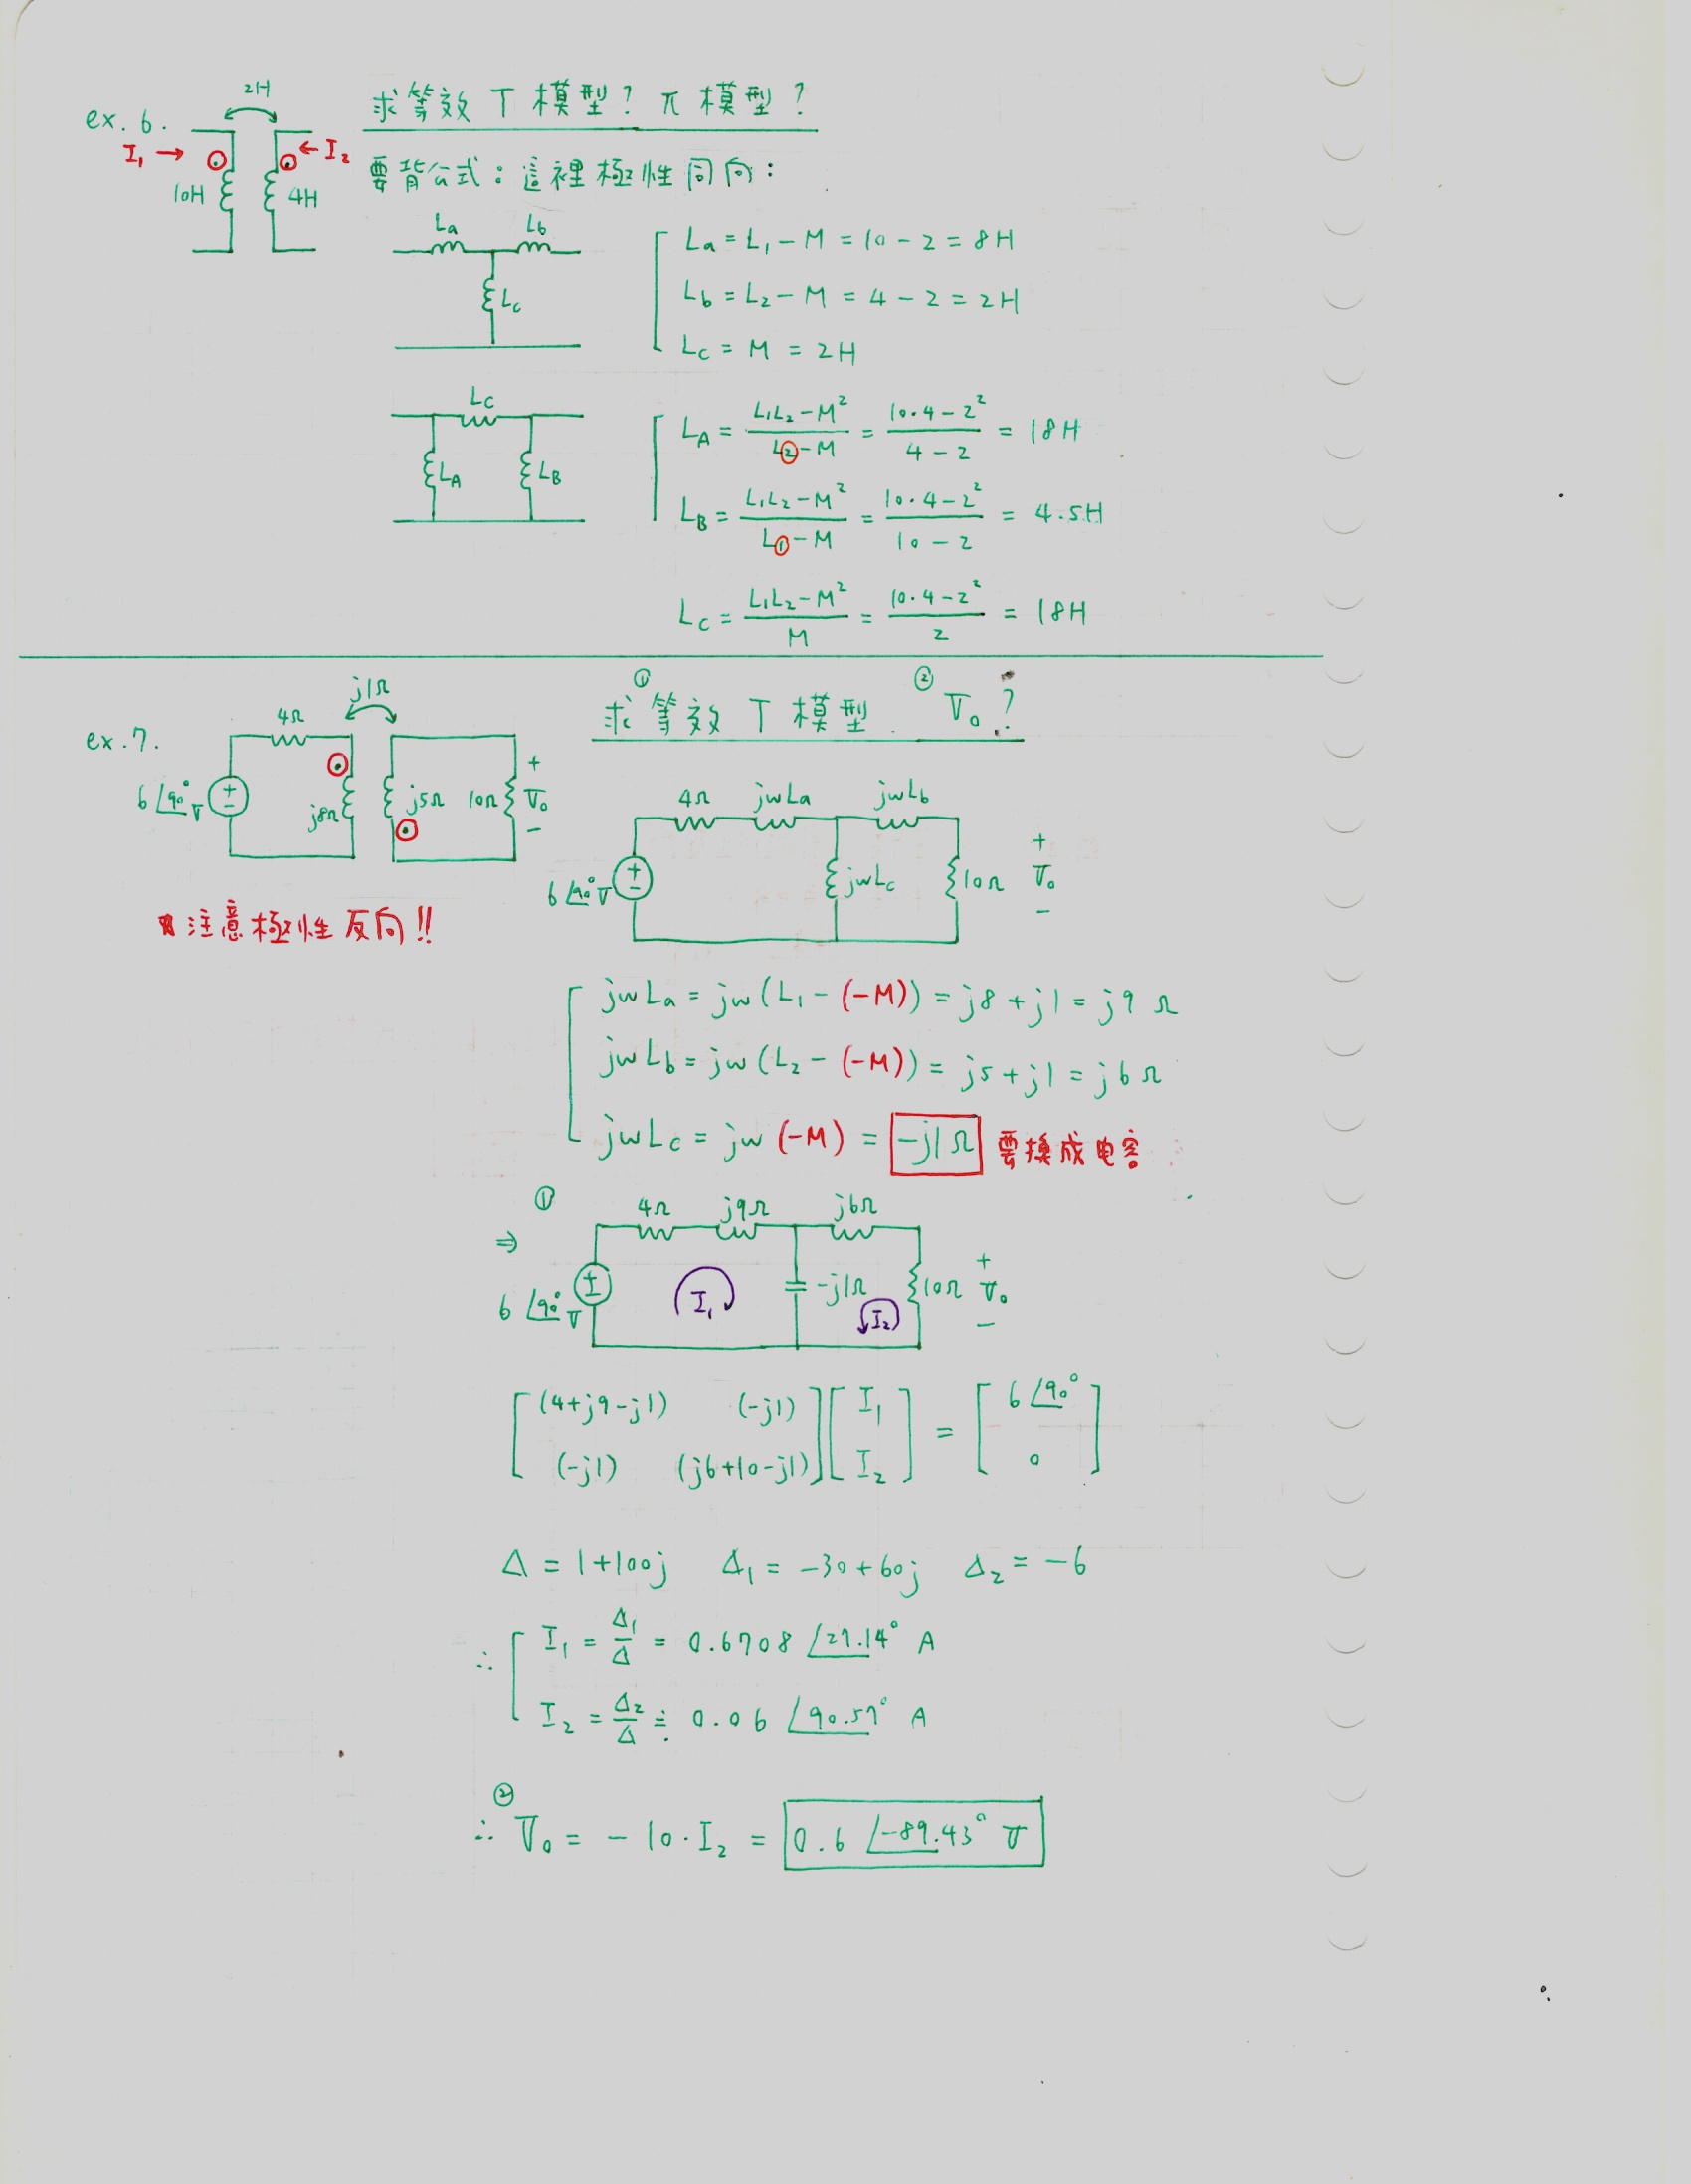 ex. 6.
2H
I₁ →
← I₂
10H
4H
求等效 T 模型? π 模型?
要背公式:這裡極性同向:
La Lb
Lc
La = L₁ - M = 10 - 2 = 8H
Lb = L₂ - M = 4 - 2 = 2H
Lc = M = 2H
Lc
LA LB
LA = (L₁L₂ - M²)/(L② - M) = (10·4 - 2²)/(4 - 2) = 18H
LB = (L₁L₂ - M²)/(L① - M) = (10·4 - 2²)/(10 - 2) = 4.5H
Lc = (L₁L₂ - M²)/M = (10·4 - 2²)/2 = 18H
ex. 7.
4Ω
j1Ω
6∠90° V
j8Ω
j5Ω 10Ω
+
V₀
-
① 求等效 T 模型. ② V₀?
注意極性反向!!
4Ω jwLa jwLb
6∠90° V
jwLc
10Ω
+
V₀
-
jwLa = jw(L₁ - (-M)) = j8 + j1 = j9 Ω
jwLb = jw(L₂ - (-M)) = j5 + j1 = j6 Ω
jwLc = jw(-M) = -j1Ω 要換成电容
①
⇒
4Ω j9Ω j6Ω
6∠90° V
I₁
-j1Ω
I₂
10Ω
+
V₀
-
[(4+j9-j1) (-j1)] [I₁] = [6∠90°]
[(-j1) (j6+10-j1)] [I₂] [0]
Δ = 1+100j Δ₁ = -30+60j Δ₂ = -6
∴ I₁ = Δ₁/Δ = 0.6708 ∠27.14° A
I₂ = Δ₂/Δ ≒ 0.06 ∠90.57° A
②
∴ V₀ = -10·I₂ = 0.6 ∠-89.43° V